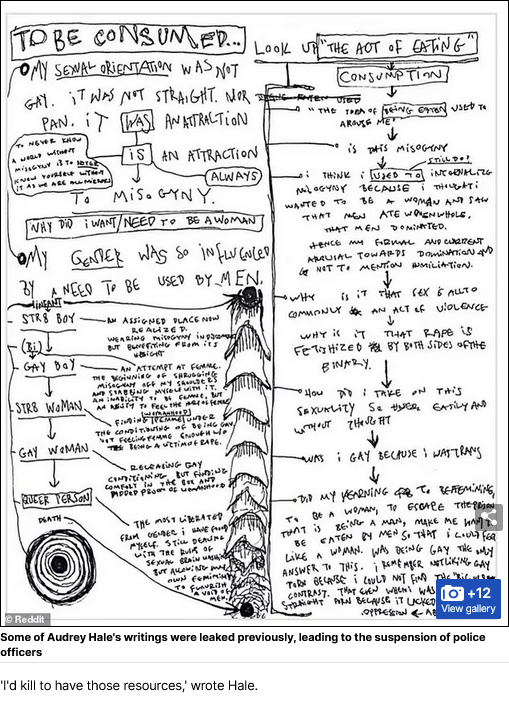 TO BE CONSUMED...
MY SEXUAL ORIENTATION WAS NOT
GAY. IT WAS NOT STRAIGHT. NOR
PAN. IT WAS AN ATTRACTION
IS AN ATTRACTION
ALWAYS
TO MISOGYNY.
TO NEVER KNOW
A WORLD WITHOUT
MISOGYNY IS TO NEVER
KNOW YOURSELF WITHOUT
IT AS WE ARE ALL MIRRORS
WHY DID i WANT/NEED TO BE A WOMAN
MY GENDER WAS SO INFLUENCED
BY A NEED TO BE USED BY MEN.
INFANT
STR8 BOY
AN ASSIGNED PLACE NOW
REALIZED.
WEARING MISOGYNY
BUT BENEFITING FROM ITS
WEIGHT
(Bi)
GAY BOY
AN ATTEMPT AT FEMME.
THE BEGINNING OF SHRUGGING
MISOGYNY OFF MY SHOULDERS
AND STABBING MYSELF WITH IT.
AN INABILITY TO BE FEMME, BUT
AN ABILITY TO FEEL THE
(WOMANHOOD)
STR8 WOMAN
FINDING (FEMME) UNDER
THE CONDITIONING OF BEING GAY.
NOT FEELING FEMME ENOUGH W/O
THE BEING A VICTIM OF RAPE.
GAY WOMAN
RELEASING GAY
CONDITIONING BUT FINDING
COMFORT IN THE BOX AND
ADDED PROOF OF WOMANHOOD
QUEER PERSON
THE MOST LIBERATED
FROM GENDER i HAVE FOUND
MYSELF. STILL DEALING
WITH THE RUINS OF
SEXUAL BRAIN
BUT ALLOWING
OWN FEMININITY
TO FLOURISH
A VOID OF
MEN.
DEATH
LOOK UP "THE ACT OF EATING"
CONSUMPTION
"THE IDEA OF BEING EATEN USED TO
AROUSE ME"
IS THIS MISOGYNY
STILL DO!
i THINK i USED TO INTERNALIZE
MISOGYNY BECAUSE i THOUGHT i
WANTED TO BE A WOMAN AND SAW
THAT MEN ATE WOMEN WHOLE,
THAT MEN DOMINATED.
HENCE MY FORMAL AND CURRENT
AROUSAL TOWARDS DOMINATION AND
NOT TO MENTION HUMILIATION.
WHY IS IT THAT SEX IS ALSO
COMMONLY AN ACT OF VIOLENCE
WHY IS IT THAT RAPE IS
FETISHIZED BY BOTH SIDES OF THE
BINARY.
HOW DID i TAKE ON THIS
SEXUALITY SO EASILY AND
WITHOUT THOUGHT
WAS i GAY BECAUSE i WAS TRANS
DID MY YEARNING TO BE FEMININE,
TO BE A WOMAN, TO ESCAPE THE PRISON
THAT IS BEING A MAN, MAKE ME WANT TO
BE EATEN BY MEN SO THAT i COULD FEEL
LIKE A WOMAN. WAS BEING GAY THE ONLY
ANSWER TO THIS. i REMEMBER NOT LIKING GAY
PORN BECAUSE i COULD NOT FIND THE
CONTRAST. THAT EVEN WHEN i WAS
STRAIGHT MEN BECAUSE IT LACKED
OPPRESSION
© Reddit
+12
View gallery
Some of Audrey Hale's writings were leaked previously, leading to the suspension of police
officers
'I'd kill to have those resources,' wrote Hale.